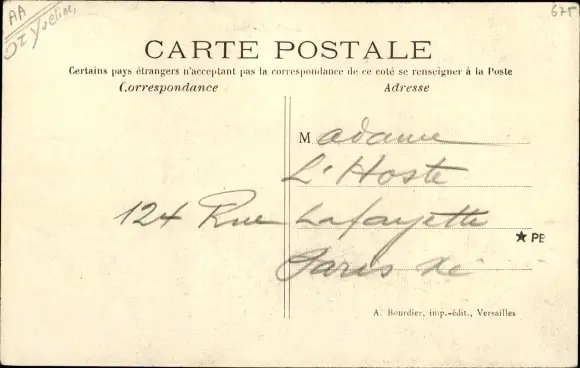 AA
St Yveline,
675
CARTE POSTALE
Certains pays étrangers n'acceptent pas la correspondance de ce coté se renseigner à la Poste
Correspondance
Adresse
Madame
L'Hoste
124 Rue Lafayette
★ PE
Paris Xe
A. Bourdier, imp.-édit., Versailles